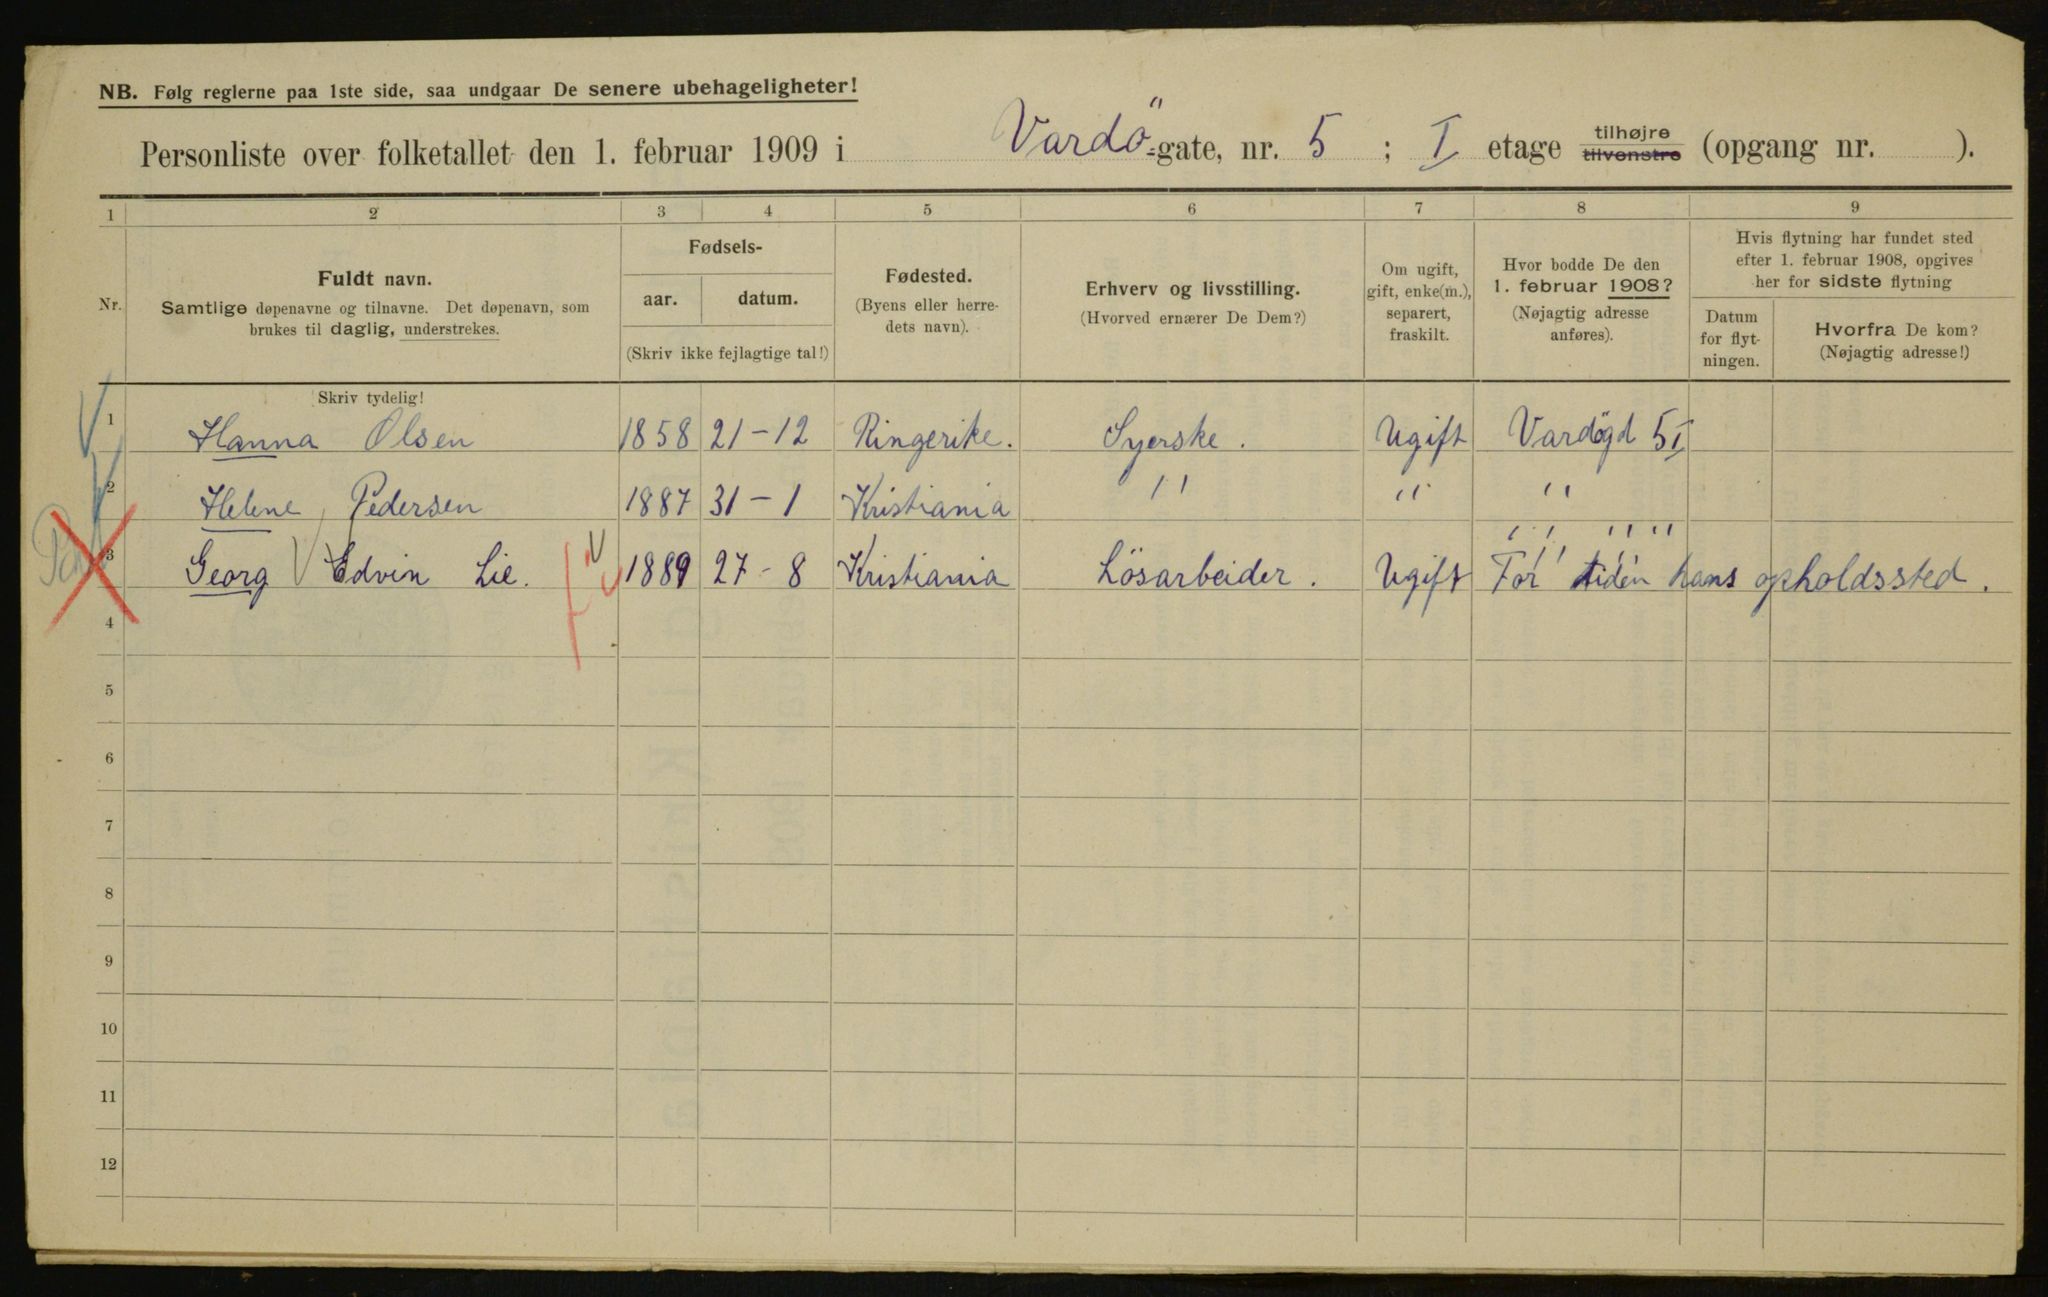 NB. Følg reglerne paa 1ste side, saa undgaar De senere ubehageligheter!
Personliste over folketallet den 1. februar 1909 i Vardö-gate, nr. 5 ; I etage tilhøjre tilvenstre (opgang nr. ).
1 2 3 4 5 6 7 8 9
Nr.
Fuldt navn.
Samtlige døpenavne og tilnavne. Det døpenavn, som
brukes til daglig, understrekes.
Fødsels-
aar. datum.
(Skriv ikke fejlagtige tal!)
Fødested.
(Byens eller herre-
dets navn).
Erhverv og livsstilling.
(Hvorved ernærer De Dem?)
Om ugift,
gift, enke(m.),
separert,
fraskilt.
Hvor bodde De den
1. februar 1908?
(Nøjagtig adresse
anføres).
Hvis flytning har fundet sted
efter 1. februar 1908, opgives
her for sidste flytning
Datum
for flyt-
ningen.
Hvorfra De kom?
(Nøjagtig adresse!)
Skriv tydelig!
1 Hanna Olsen 1858 21-12 Ringerike. Syerske. Ugift Vardögd 5 I
2 Helene Pedersen 1887 31-1 Kristiania " " "
" " " "
3 Georg Edvin Lie. 1889 27-8 Kristiania Lösarbeider. Ugift For tiden hans opholdssted.
4
5
6
7
8
9
10
11
12